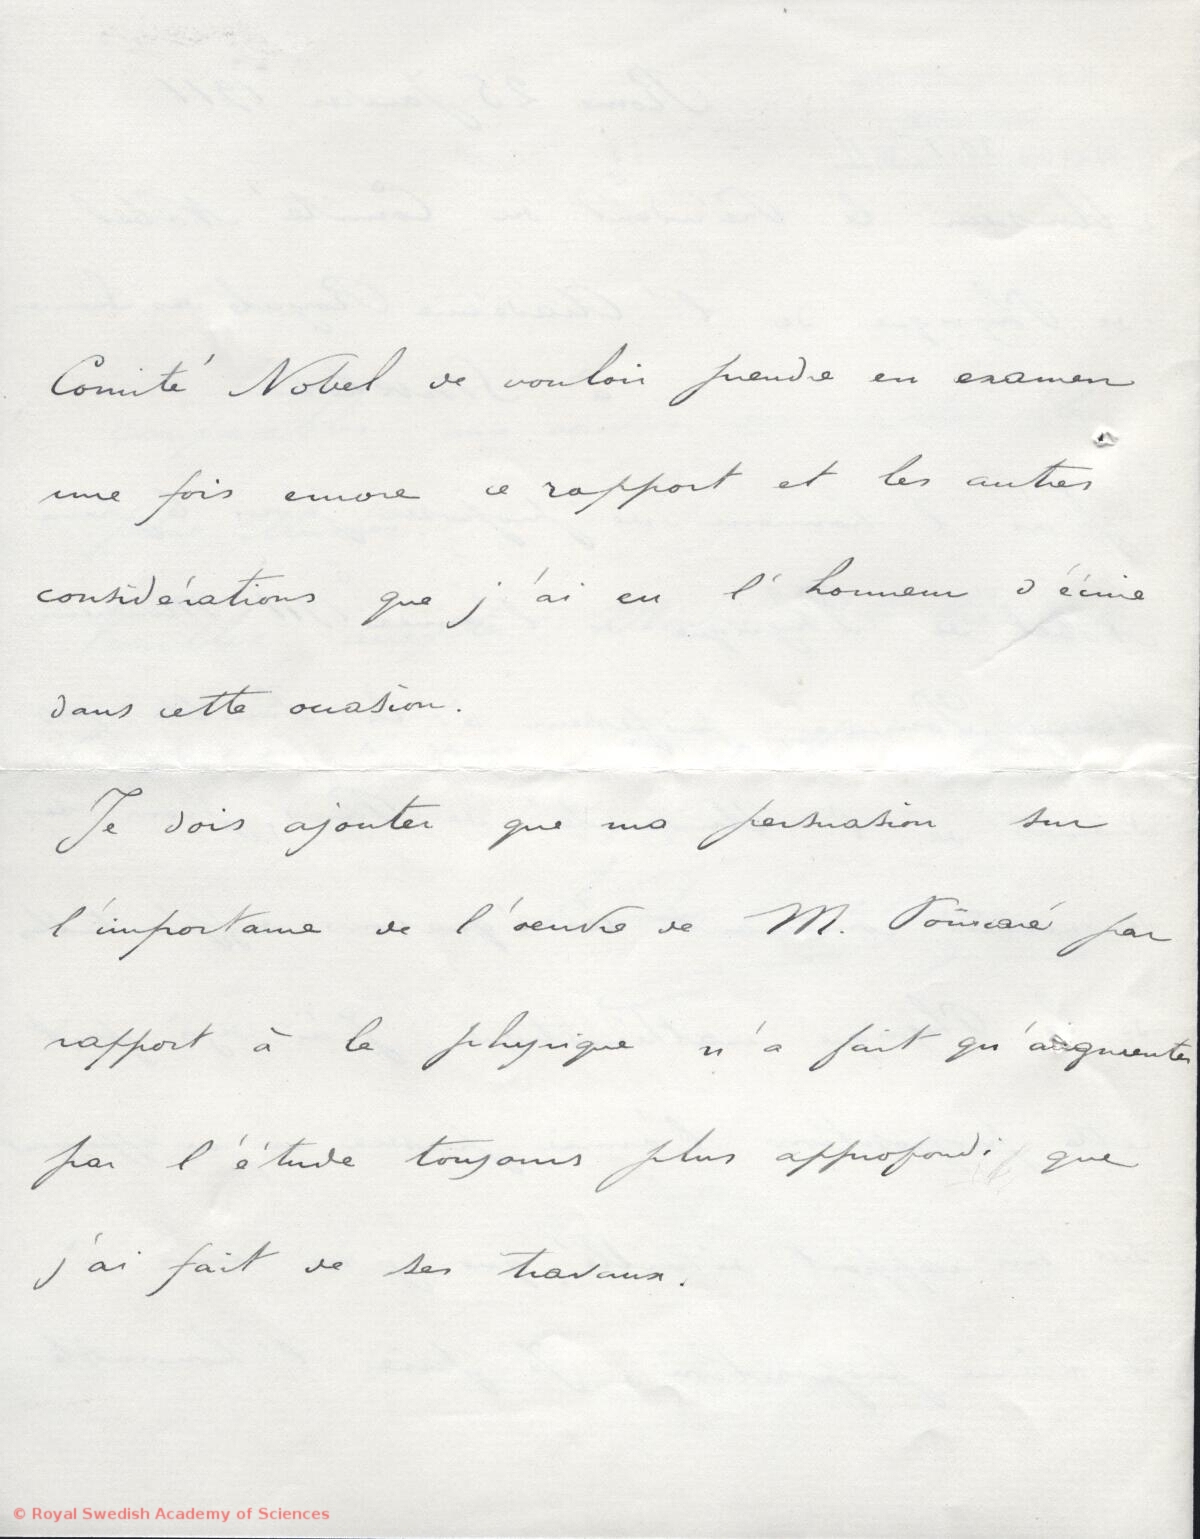 Comité Nobel de vouloir prendre en examen
une fois encore ce rapport et les autres
considérations que j'ai eu l'honneur d'écrire
dans cette occasion.
Je dois ajouter que ma persuasion sur
l'importance de l'oeuvre de M. Poincaré par
rapport à la physique n'a fait qu'augmenter
par l'étude toujours plus approfondi que
j'ai fait de ses travaux.
© Royal Swedish Academy of Sciences